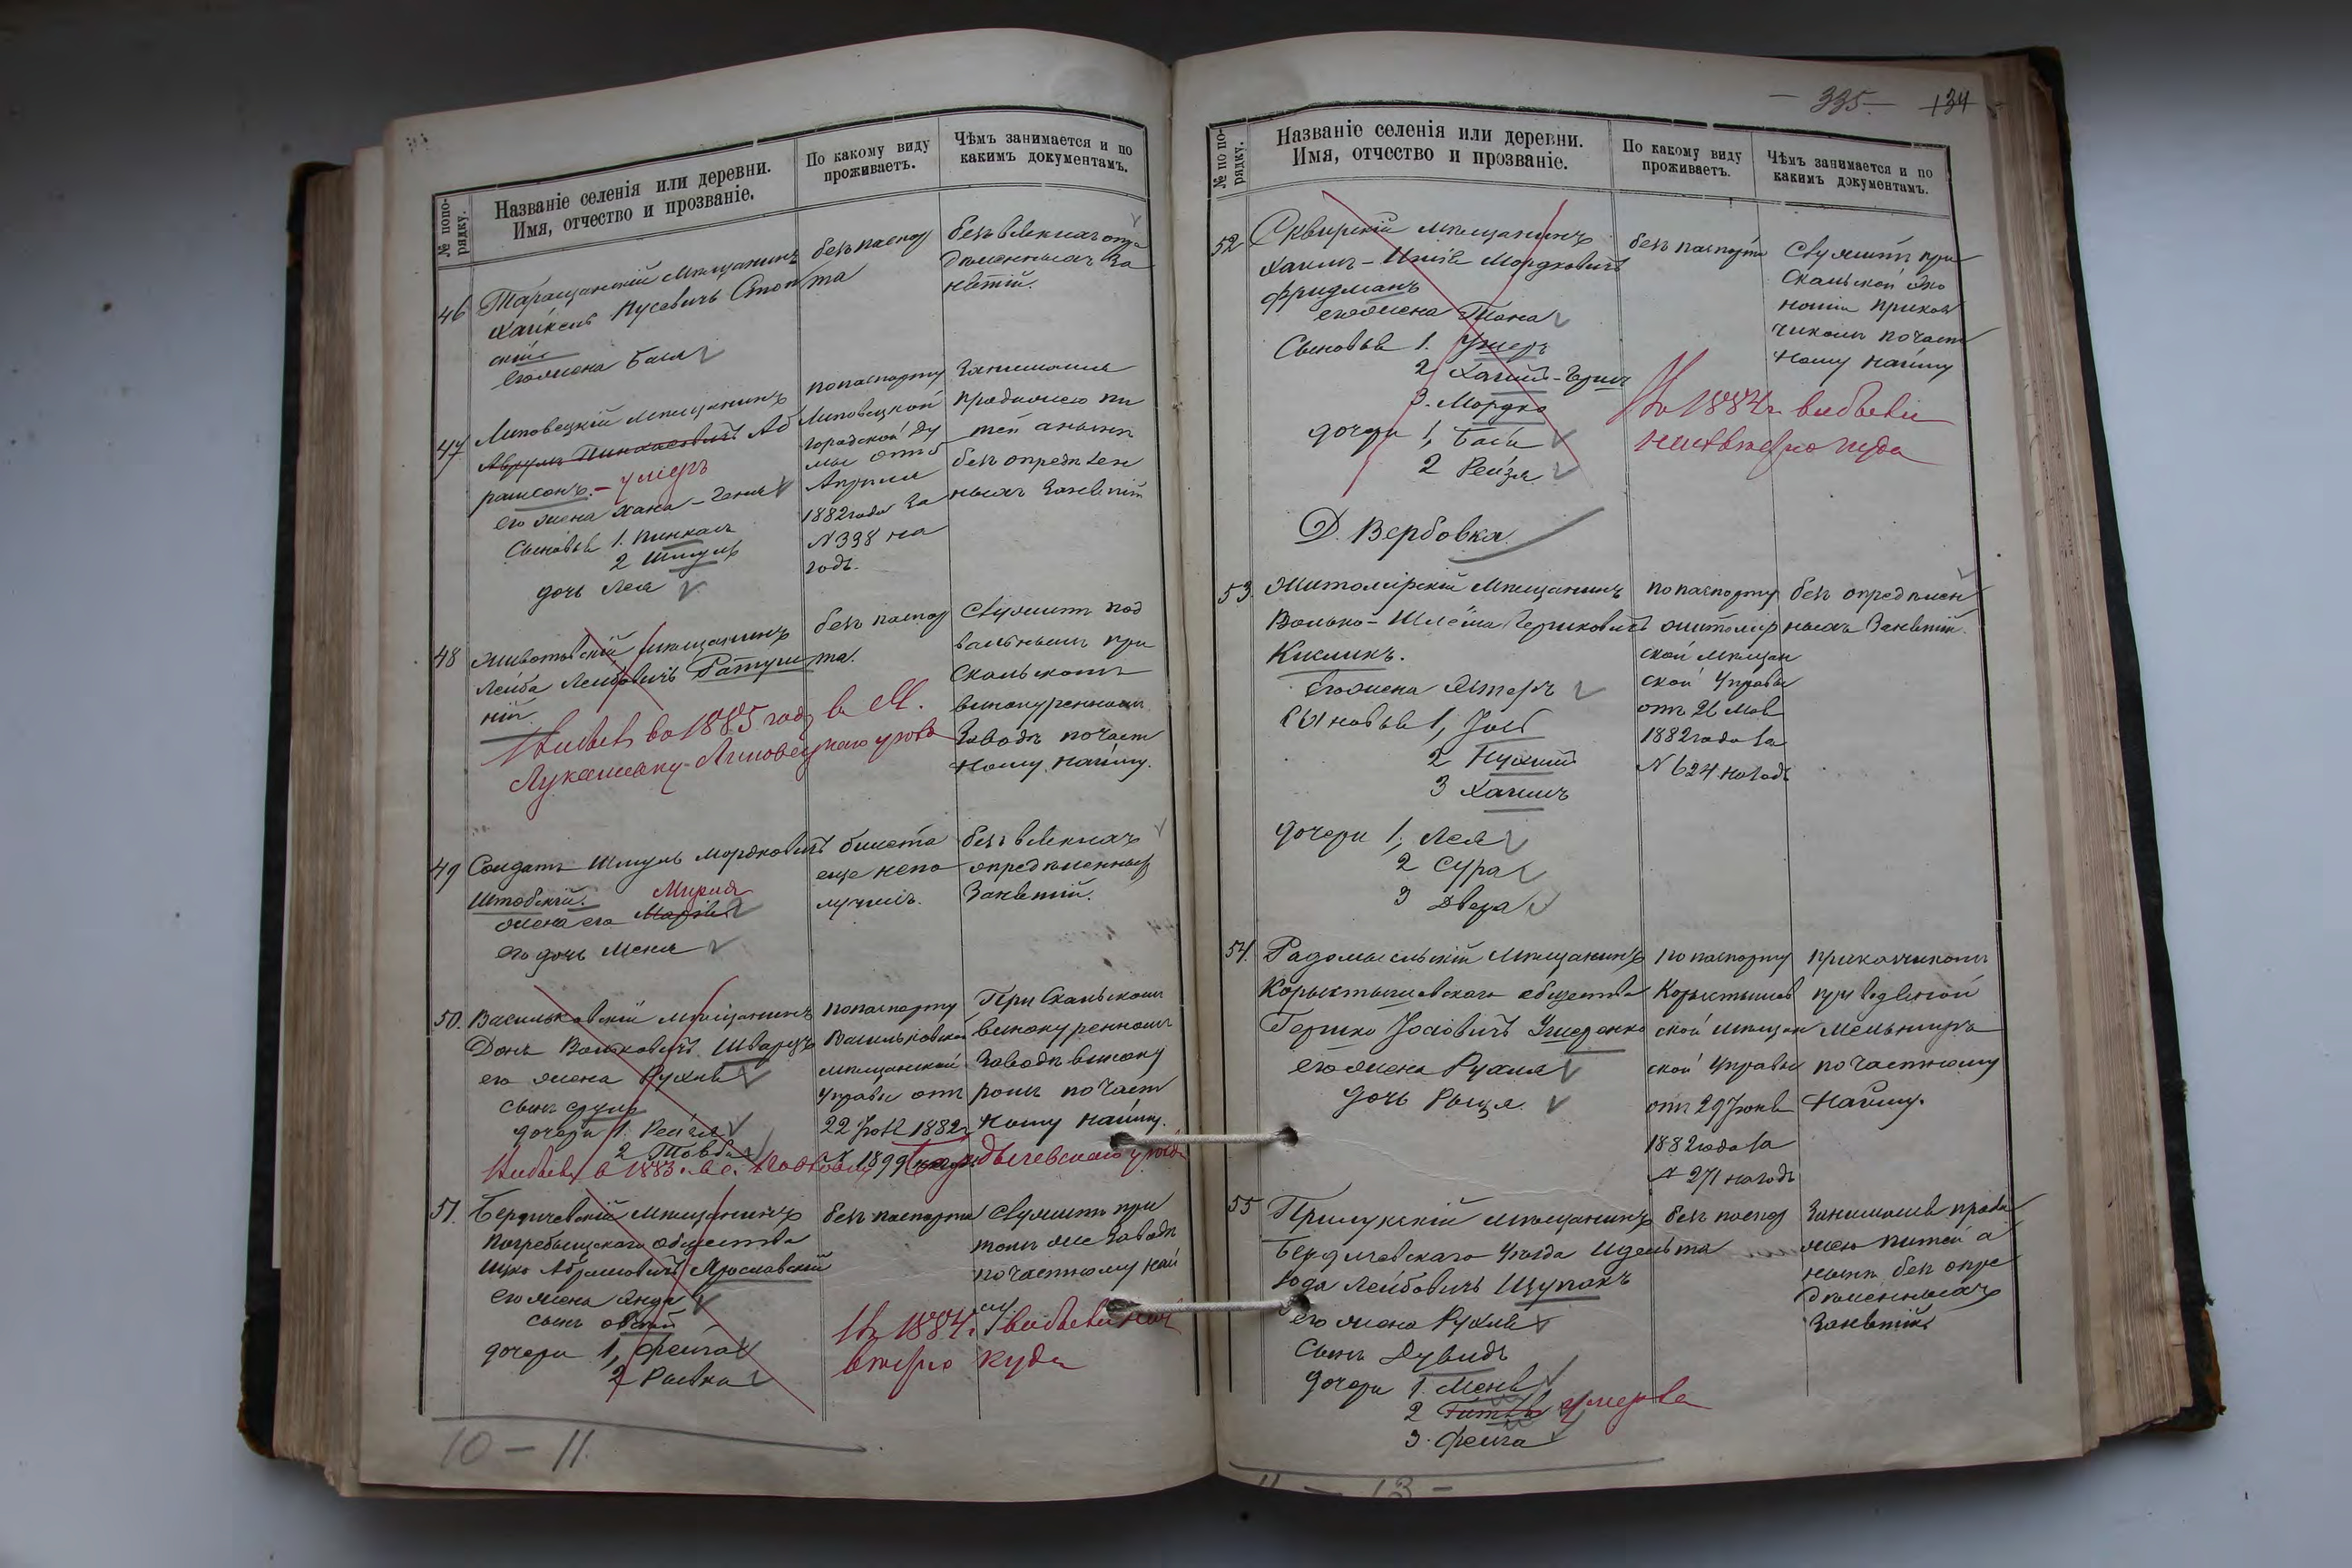 № по по-
рядку.
Названіе селенія или деревни.
Имя, отчество и прозваніе.
По какому виду
проживаетъ.
Чѣмъ занимается и по
какимъ документамъ.
46
Таращанскій мѣщанинъ
Хаикель Пусевичъ
скій
его жена Бася
безъ паспор
та
безъ всякихъ опре
дѣленныхъ за
нятій.
47
Липовецкій мѣщанинъ
Аврумъ Пинхасовичъ Аб
рамсонъ. - умеръ
его жена Хана - Геня
Сыновья 1. Пинхасъ
2 Шмуль
дочь Лея
по паспорту
Липовецкой
городской Ду
мы отъ
Апрѣля
1882 года за
№ 398 на
годъ.
Занимался
продажею пи
тей а нынѣ
безъ опредѣлен
ныхъ занятій
48
Животовскій мѣщанинъ
Лейба Лейбовичъ Ратуш
ній
безъ паспор
та.
Служитъ под
вальнымъ при
Скальскомъ
винокуренномъ
заводѣ по част
ному найму.
Выбылъ въ 1885 году въ м.
Лукашевку Липовецкаго уѣзда
49
Солдатъ Шмуль Мордковичъ
Штобскій.
Мирля
жена его Марія
его дочь Меня
билета
еще не по
лучилъ.
безъ всякихъ
опредѣленныхъ
занятій.
50.
Васильковскій мѣщанинъ
Донъ Вольковичъ Шварцъ
его жена Рухля
сынъ Сруль
дочери 1. Рейзя
2 Товба
по паспорту
Васильковской
мѣщанской
управы отъ
22 1882 г
№ 1899 на годъ
При Скальскомъ
винокуренномъ
заводѣ виноку
ромъ по част
ному найму.
Выбылъ въ 1883 г. въ с. Бердичевскаго уѣзда
51.
Бердичевскій мѣщанинъ
Погребыщскаго общества
Ицко Абрамовичъ Ярославскій
его жена Янда
сынъ Овсій
дочери 1, Фейга
2 Ривка
безъ паспорта
Служитъ при
томъ же заводѣ
по частному най
му
Въ 1884 г. выбылъ неиз
вѣстно куда
10 - 11.
- 335 -
134
№ по по-
рядку.
Названіе селенія или деревни.
Имя, отчество и прозваніе.
По какому виду
проживаетъ.
Чѣмъ занимается и по
какимъ документамъ.
52
Сквирскій мѣщанинъ
Хаимъ - Мордковичъ
Фридманъ
его жена Тана
Сыновья 1. Ушеръ
2 Хаимъ - Герш
3. Мордко
дочери 1, Бася
2 Рейзя
безъ паспорта
Служитъ при
Скальской эко
номіи прикащ
чикомъ по част
ному найму
Въ 1884 г. выбылъ
неизвѣстно куда
Д. Вербовка
53.
Житомірскій мѣщанинъ
Волько - Шлёма Гершковичъ
Кислинъ.
его жена Эстеръ
Сыновья 1, Іось
2 Нухимъ
3 Хаимъ
дочери 1, Лея
2 Сура
3 Двера
по паспорту
Житомир
ской мѣщан
ской управы
отъ 26 Мая
1882 года за
№ 624 на годъ
безъ опредѣлен
ныхъ занятій.
54.
Радомысльскій мѣщанинъ
Коростышевскаго общества
Гершко Іосіовичъ Ушеренко
его жена Рухля
дочь Рыця
по паспорту
Коростышев
ской мѣщан
ской управы
отъ 29 Іюня
1882 года за
№ 271 на годъ
прикащикомъ
при водяной
мельницѣ
по частному
найму.
55
Прилукскій мѣщанинъ
Бердичевскаго уѣзда Идель
Юда Лейбовичъ Щупакъ
его жена Рухля
Сынъ Дувидъ
дочери 1. Меня
2 Гитля умерла
3. Фейга
безъ паспор
та
Занимался прода
жею питей а
нынѣ безъ опре
дѣленныхъ
занятій
11 - 13 -